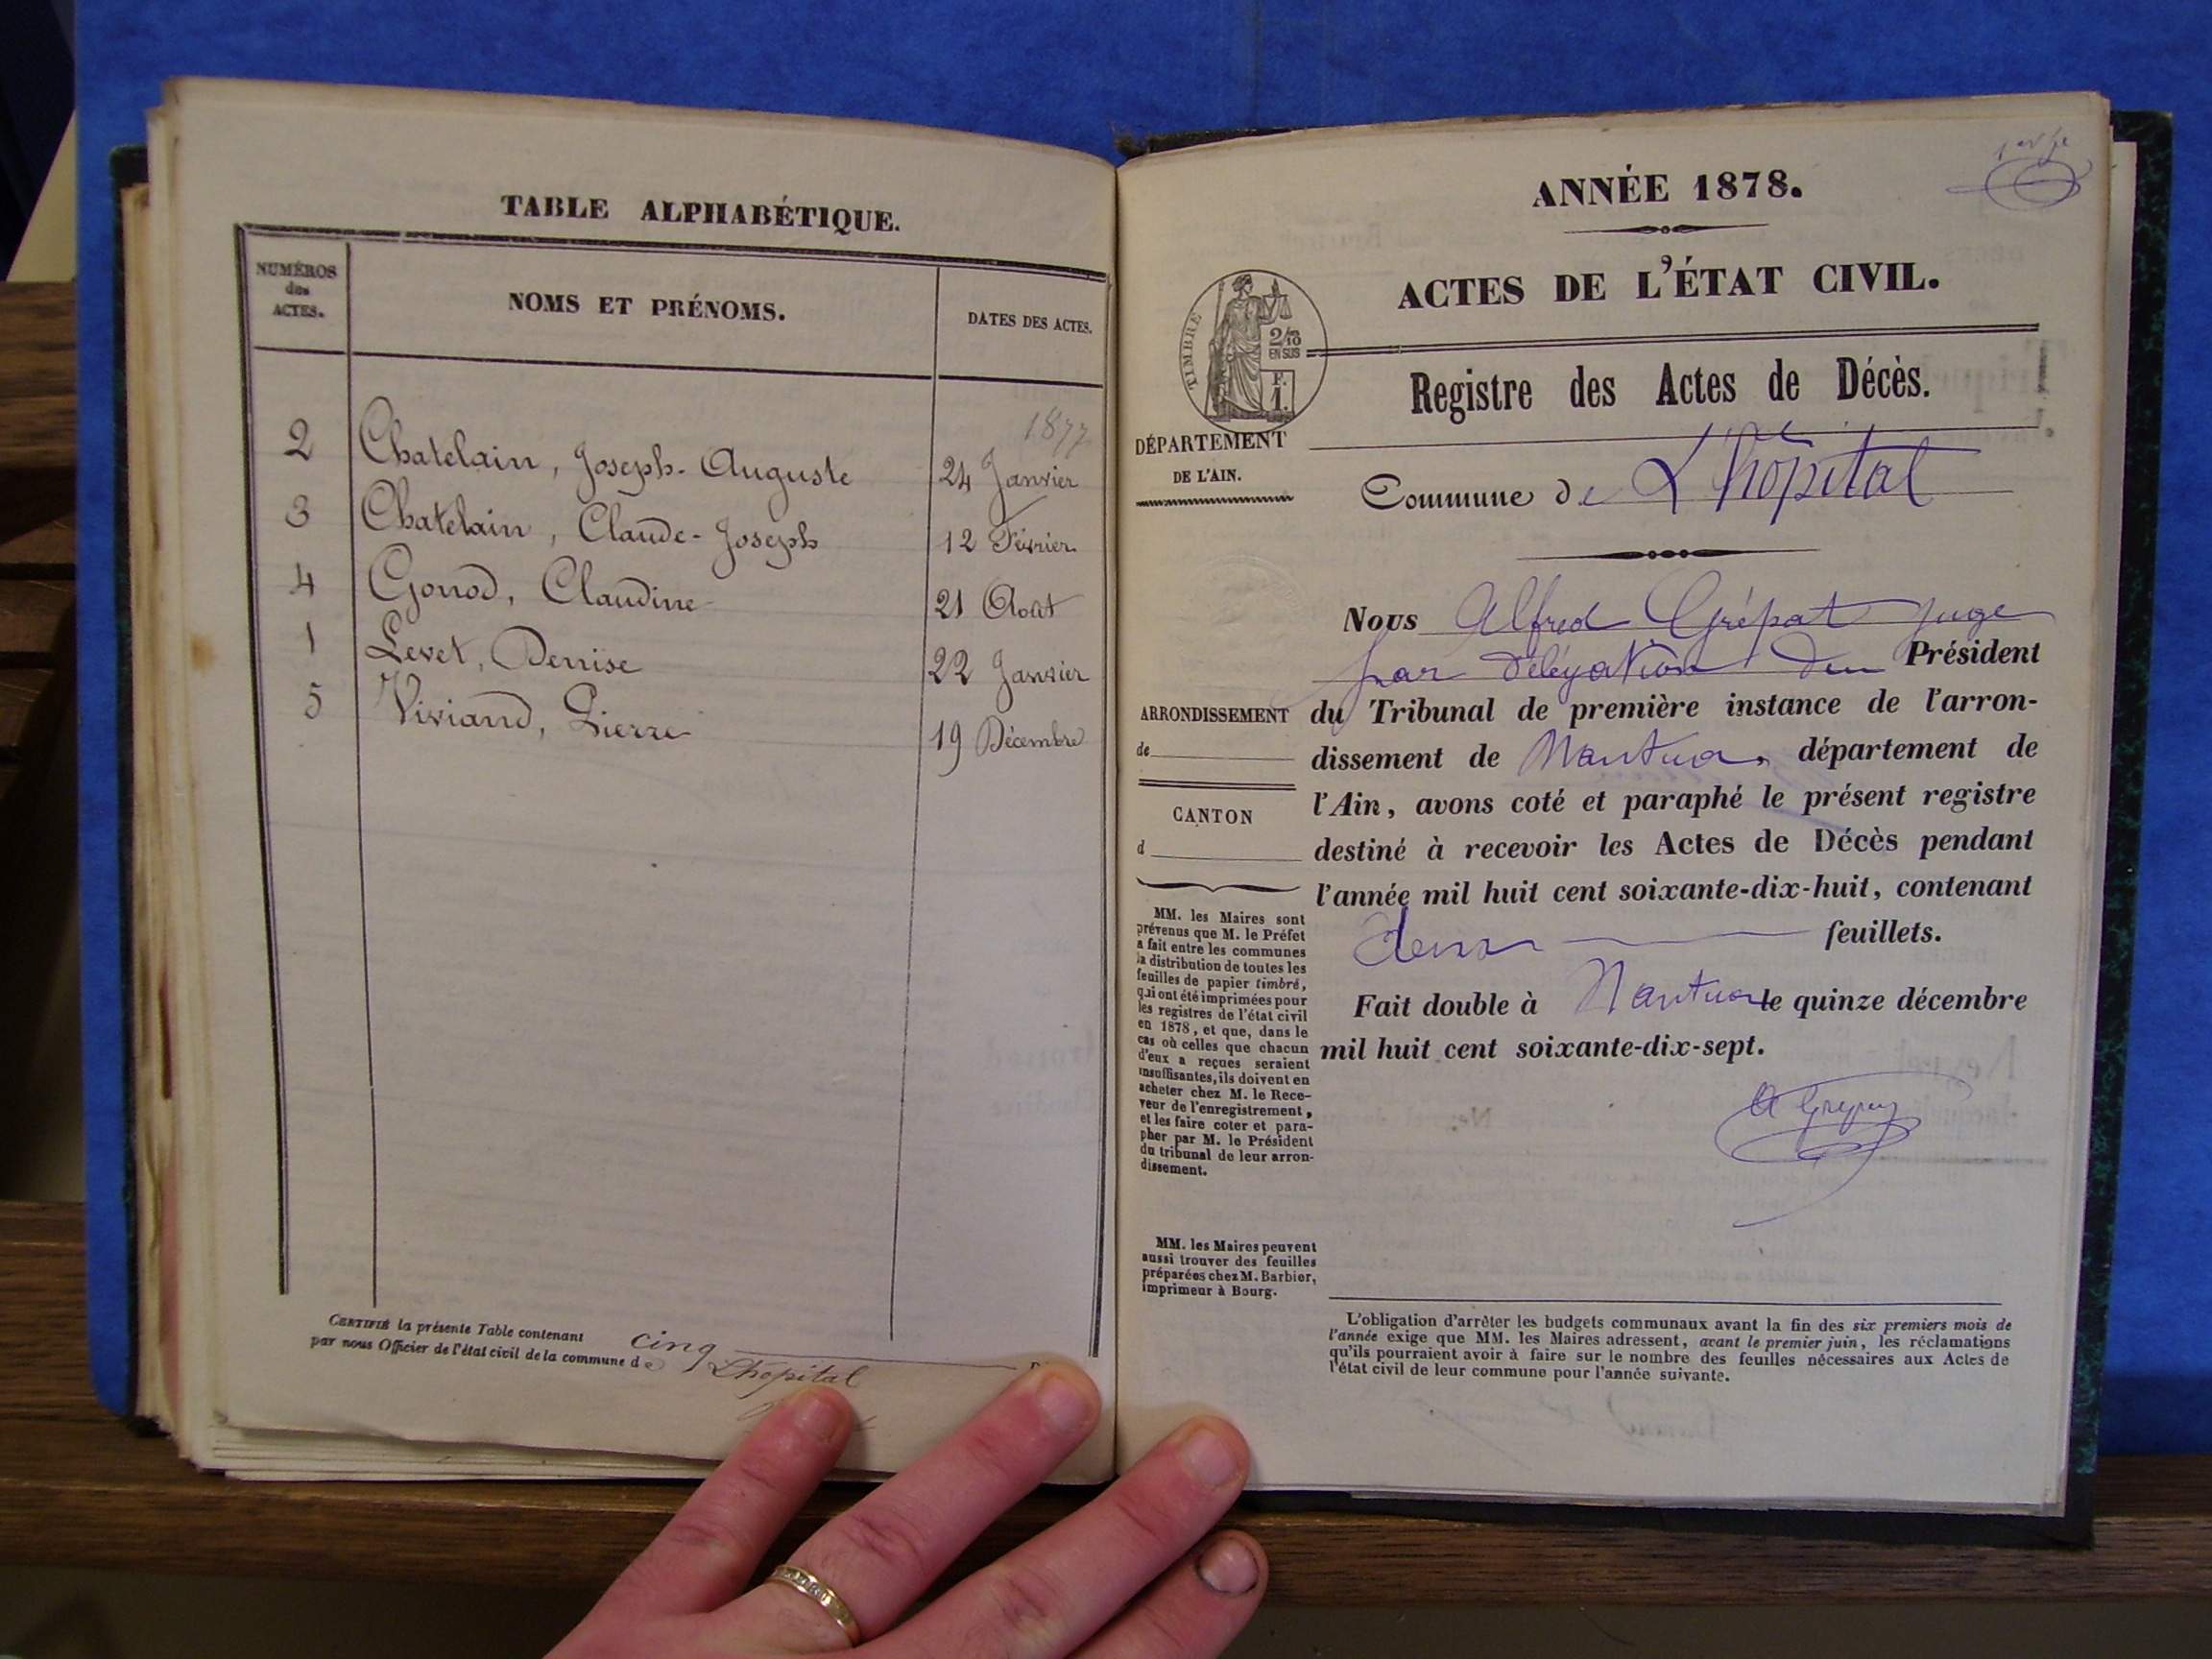 TABLE ALPHABÉTIQUE.
NUMÉROS
des
ACTES.
NOMS ET PRÉNOMS.
DATES DES ACTES.
1877
2 Chatelain, Joseph-Auguste 24 Janvier
3 Chatelain, Claude-Joseph 12 Février
4 Gonod, Claudine 21 Août
1 Levet, Denise 22 Janvier
5 Viviand, Pierre 19 Décembre
CERTIFIÉ la présente Table contenant cinq
par nous Officier de l'état civil de la commune de Lhopital
ANNÉE 1878.
ACTES DE L'ÉTAT CIVIL.
TIMBRE
2/10
EN SUS
F.
1.
Registre des Actes de Décès.
DÉPARTEMENT
DE L'AIN.
Commune de L'hôpital
Nous Alfred Grépat juge
par délégation du Président
du Tribunal de première instance de l'arron-
dissement de Nantua, département de
l'Ain, avons coté et paraphé le présent registre
destiné à recevoir les Actes de Décès pendant
l'année mil huit cent soixante-dix-huit, contenant
deux feuillets.
Fait double à Nantua le quinze décembre
mil huit cent soixante-dix-sept.
ARRONDISSEMENT
de
CANTON
d
MM. les Maires sont
prévenus que M. le Préfet
a fait entre les communes
la distribution de toutes les
feuilles de papier timbré,
qui ont été imprimées pour
les registres de l'état civil
en 1878, et que, dans le
cas où celles que chacun
d'eux a reçues seraient
insuffisantes, ils doivent en
acheter chez M. le Rece-
veur de l'enregistrement,
et les faire coter et para-
pher par M. le Président
du tribunal de leur arron-
dissement.
MM. les Maires peuvent
aussi trouver des feuilles
préparées chez M. Barbier,
imprimeur à Bourg.
L'obligation d'arrêter les budgets communaux avant la fin des six premiers mois de
l'année exige que MM. les Maires adressent, avant le premier juin, les réclamations
qu'ils pourraient avoir à faire sur le nombre des feuilles nécessaires aux Actes de
l'état civil de leur commune pour l'année suivante.